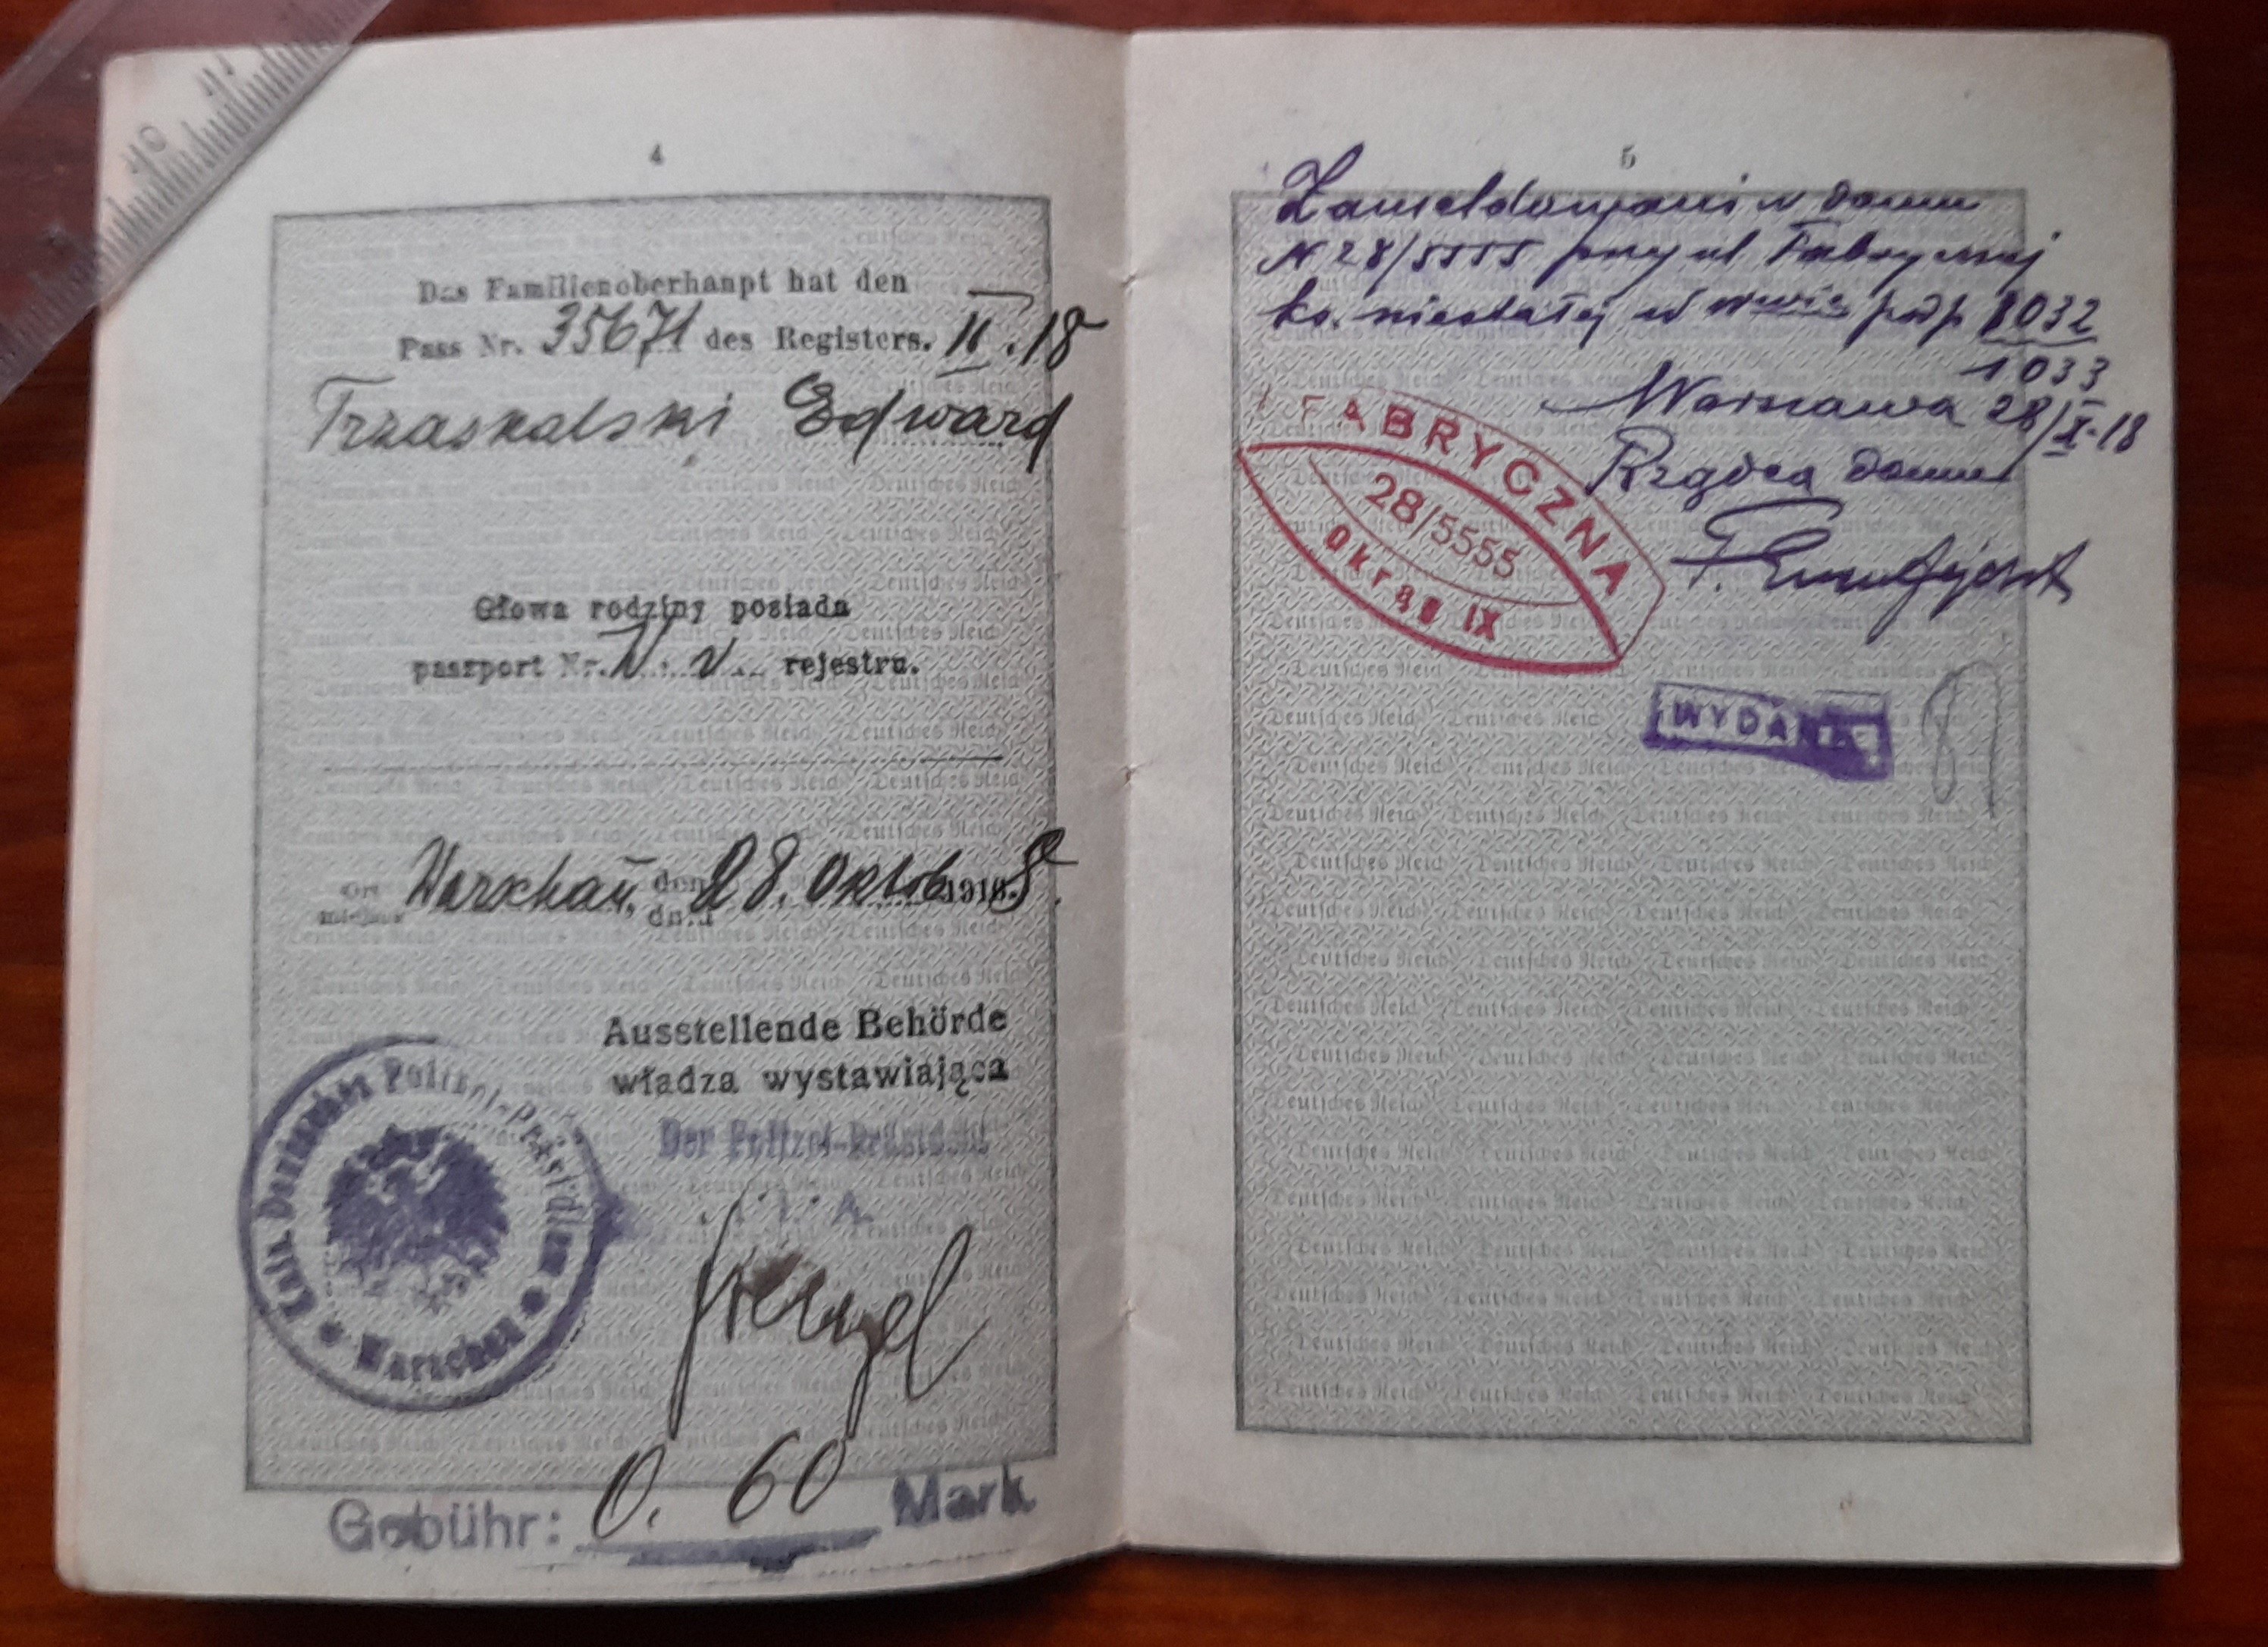 4
Das Familienoberhaupt hat den
Pass Nr. 35671 des Registers. II. 18
Trzaskalski Edward
Głowa rodziny posiada
paszport Nr. N. V. rejestru.
Ort Warschau, den 28. Oktob 1918.
miejsce dnia
Ausstellende Behörde
władza wystawiająca
Der Polizei-Präsident
I. A.
Kais. Deutsches Polizei-Präsidium
Warschau
Gebühr: 0. 60 Mark
5
Zameldowani w domu
N 28/5555 przy ul Fabrycznej
ks. niestałej w podp 1032
1033
Warszawa 28/X-18
Rządca domu
FABRYCZNA
28/5555
Okrąg IX
WYDANE
Deutsches Reich